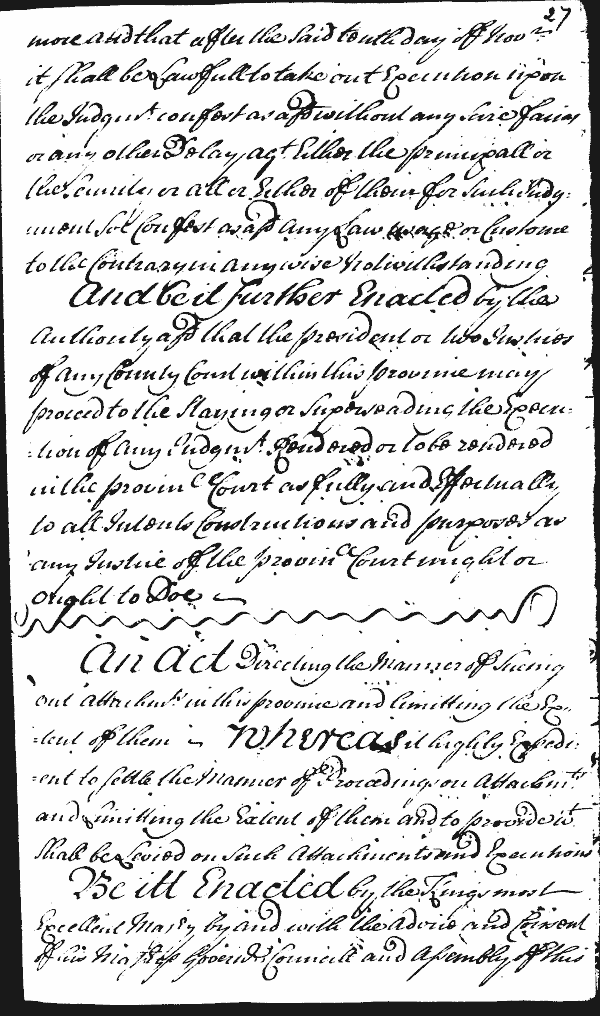 27
more and that after the said tenth day of Nov.r
it shall be Lawfull to take out Execution upon
the Judgmt confest as afd without any scire facias
or any other Delay agt Either the principall or
the Security or all or Either of them for such Judg-
ment soe Confest as afd any Law usage or Custome
to the Contrary in any wise Notwithstanding
And be it further Enacted by the
Authority afd that the president or two Justices
of any County Court within this province may
proceed to the Staying or Superseading the Execu-
-tion of any Judgmt Rendered or to be rendered
in the provinc.ll Court as fully and Effectually
to all Intents Constructions and purposes as
any Justice of the provinc.ll Court might or
Ought to Doe
An Act Directing the Manner of Sueing
out Attachmts in this province and limitting the Ex-
-tent of them Whereas it highly Expedi-
-ent to settle the Manner of Proceedings on Attachmts
and Limitting the Extent of them and to provide wt
shall be Levied on such Attachments and Executions
Be itt Enacted by the Kings most
Excellent Majty by and with the Advice and Consent
of his Majtys Govern.r Councill and Assembly of this